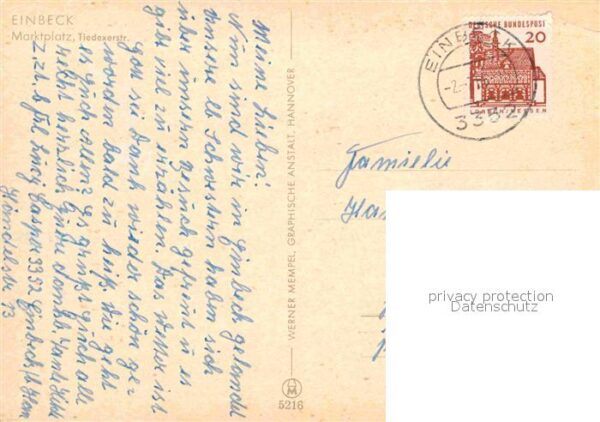 EINBECK
Marktplatz, Tiedexerstr.
Meine Lieben!
Nun sind wir in Einbeck gelandet
unsere lb Schwestern haben sich
über unsern Besuch gefreut u es
gibt viel zu erzählen. Das Wetter ist
gott sei Dank wieder schön ge-
worden bald zu heiß. Wie geht
es Euch allen? es grüßt Euch alle
recht herzlich Tante
Z.Zt. b Frl. Casper 3352 Einbeck / Han
Händelstr 13
WERNER MEMPEL, GRAPHISCHE ANSTALT, HANNOVER
5216
DEUTSCHE BUNDESPOST
20
LORSCH/HESSEN
EINBECK
-2.
3352
Familie
Han
privacy protection
Datenschutz